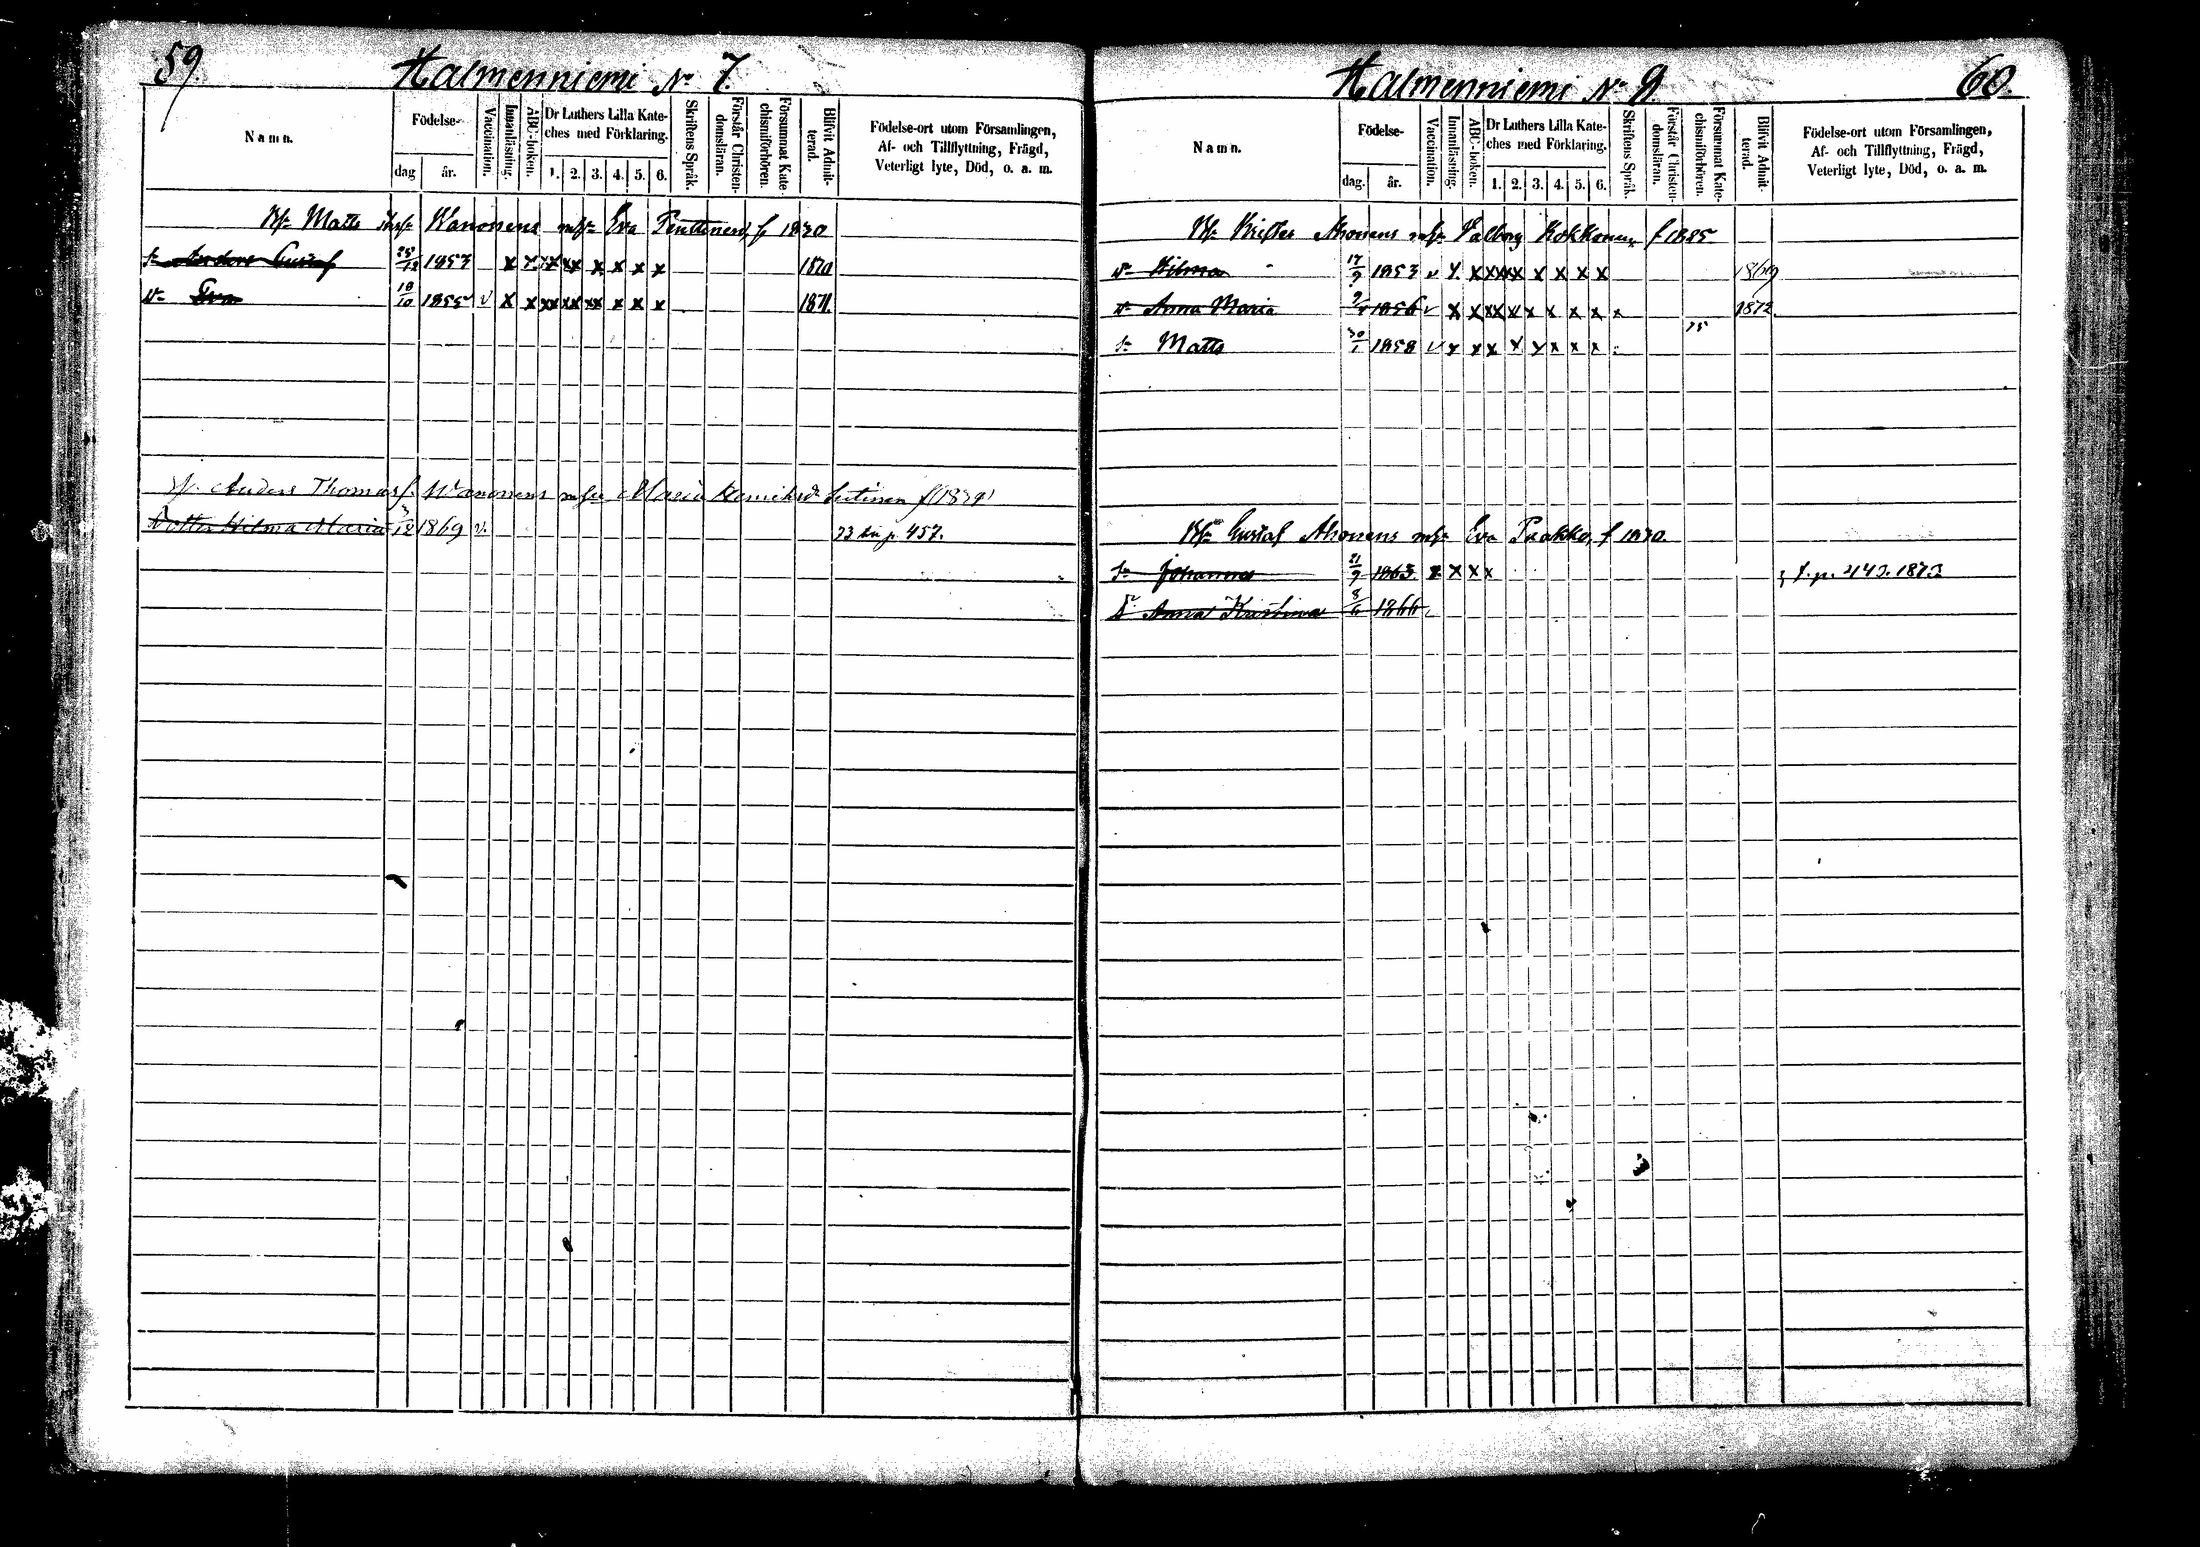 59.
Halmenniemi No 7.
Namn.
Födelse-
dag
år.
Vaccination.
Innanläsning.
ABC-boken.
Dr Luthers Lilla Kate-
ches med Förklaring.
1. 2. 3. 4. 5. 6.
Skriftens Språk.
Förstår Christen-
domsläran.
Försummat Kate-
chismiförhören.
Blifvit Admit-
terad.
Födelse-ort utom Församlingen,
Af- och Tillflyttning, Frägd,
Veterligt lyte, Död, o. a. m.
Matts Wanonens Eva Penttinen, f 1830
Sn Anders Gustaf 25/12 1853 x x x x x x x x 1870
Dr Eva 18/10 1855 v x x xx xx xx x x x 1871.
Anders Thomasf. Wanonens Maria Lertinen f (1839)
Dotter Hilma Maria 3/12 1869 v. 73 p. 457.
60.
Halmenniemi No 8.
Namn.
Födelse-
dag.
år.
Vaccination.
Innanläsning.
ABC-boken.
Dr Luthers Lilla Kate-
ches med Förklaring.
1. 2. 3. 4. 5. 6.
Skriftens Språk.
Förstår Christen-
domsläran.
Försummat Kate-
chismiförhören.
Blifvit Admit-
terad.
Födelse-ort utom Församlingen,
Af- och Tillflyttning, Frägd,
Veterligt lyte, Död, o. a. m.
Krister Ahonens Valborg Kokkonen f 1825
Dr Hilma 17/9 1853 v x xx xx x x x x 1869
Dr Anna Maria 1856 v x x xx x x x x x 1872
75
Sn Matts 30/1 1858 v x x x x x x x x
Gustaf Ahonens Eva Pukko, f 1830.
Sn Johannes 21/9 1863 x x x x p. 443. 1873
Dr Anna Kristina 8/6 1866